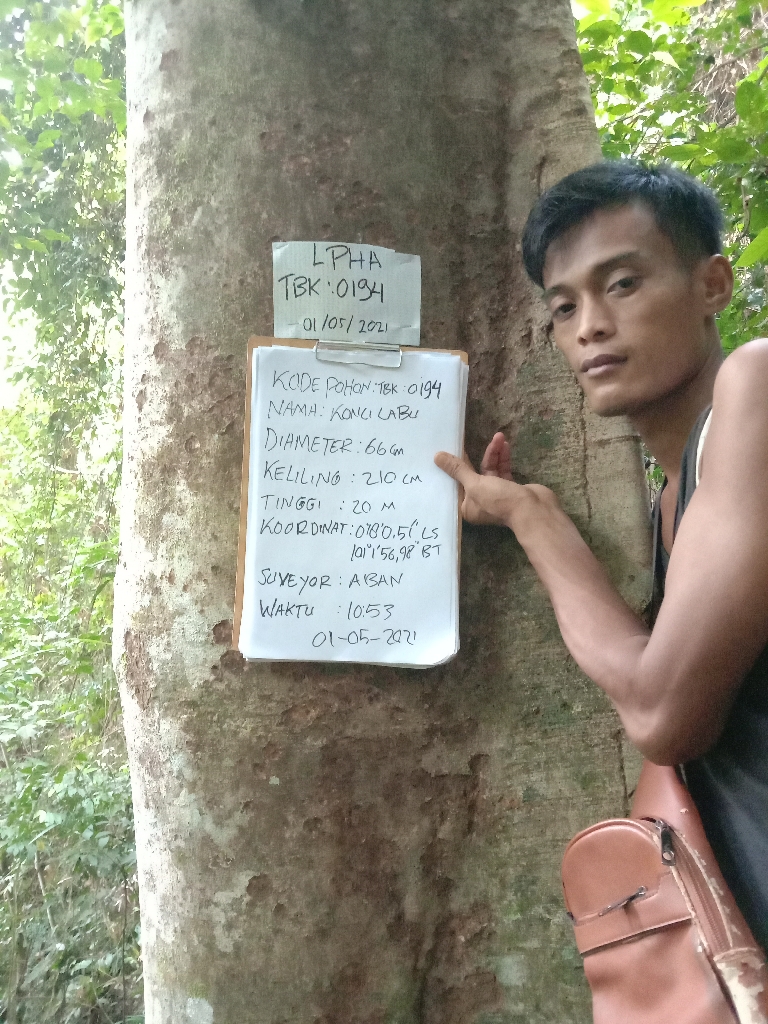 LPHA
TBK : 0194
01/05/2021
KODE POHON : TBK : 0194
NAMA : KONCI LABU
DIAMETER : 66 cm
KELILING : 210 cm
TINGGI : 20 M
KOORDINAT : 0°8'0,51" LS
101°1'56,98" BT
SUVEYOR : ABAN
WAKTU : 10:53
01-05-2021